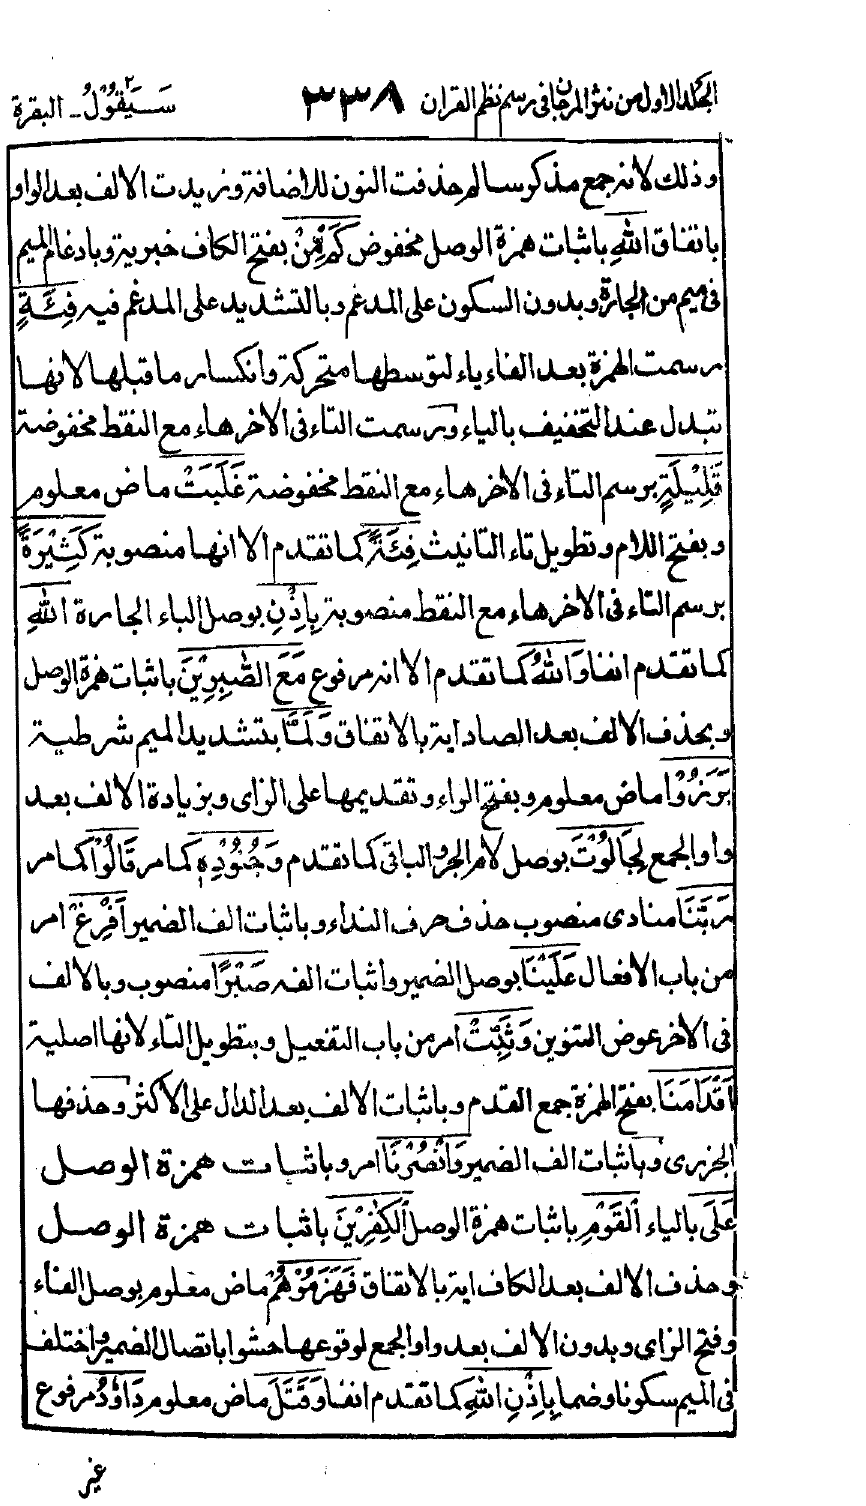 المجلد الاول من نثر المرجان فى رسم نظم القران ٣٣٨ سَيَقُوْلُ ٢ ـ البقرة
وذلك لانه جمع مذكر سالم حذفت النون للاضافة وزيدت الالف بعد الواو
باتفاق اللهِ باثبات همزة الوصل مخفوض كَمْ مِّنْ بفتح الكاف خبرية وبادغام الميم
فى ميم من الجارة وبدون السكون على المدغم وبالتشديد على المدغم فيه فِئَةٍ
رسمت الهمزة بعد الفاء ياء لتوسطها متحركة وانكسار ما قبلها لانها
تبدل عند التخفيف بالياء ورسمت التاء فى الاخر هاء مع النقط مخفوضة
قَلِيْلَةٍ برسم التاء فى الاخر هاء مع النقط مخفوضة غَلَبَتْ ماض معلوم
وبفتح اللام وتطويل تاء التانيث فِئَةً كما تقدم الا انها منصوبة كَثِيْرَةً
برسم التاء فى الاخر هاء مع النقط منصوبة بِاِذْنِ بوصل الباء الجارة اللهِ
كما تقدم انفا وَاللهُ كما تقدم الا انه مرفوع مَعَ الصّٰبِرِيْنَ باثبات همزة الوصل
وبحذف الالف بعد الصاد اية بالاتفاق وَلَمَّا بتشديد الميم شرطية
بَرَزُوْا ماض معلوم وبفتح الراء وتقديمها على الزاى وبزيادة الالف بعد
واو الجمع لِجَالُوْتَ بوصل لام الجر والباقى كما تقدم وَجُنُوْدِهٖ كما مر قَالُوْا كما مر
رَبَّنَا منادى منصوب حذف حرف النداء وباثبات الف الضمير اَفْرِغْ امر
من باب الافعال عَلَيْنَا بوصل الضمير واثبات الفه صَبْرًا منصوب وبالالف
فى الاخر عوض التنوين وَثَبِّتْ امر من باب التفعيل وبتطويل التاء لانها اصلية
اَقْدَامَنَا بفتح الهمزة جمع القدم وباثبات الالف بعد الدال على الاكثر وحذفها
الجزرى وباثبات الف الضمير وَانْصُرْنَا امر وباثبات همزة الوصل
عَلَى بالياء الْقَوْمِ باثبات همزة الوصل الْكٰفِرِيْنَ باثبات همزة الوصل
وحذف الالف بعد الكاف اية بالاتفاق فَهَزَمُوْهُمْ ماض معلوم بوصل الفاء
وفتح الزاى وبدون الالف بعد واو الجمع لوقوعها حشوا باتصال الضمير واختلف
فى الميم سكونا وضما بِاِذْنِ اللهِ كما تقدم انفا وَقَتَلَ ماض معلوم دَاوٗدُ مرفوع
غير